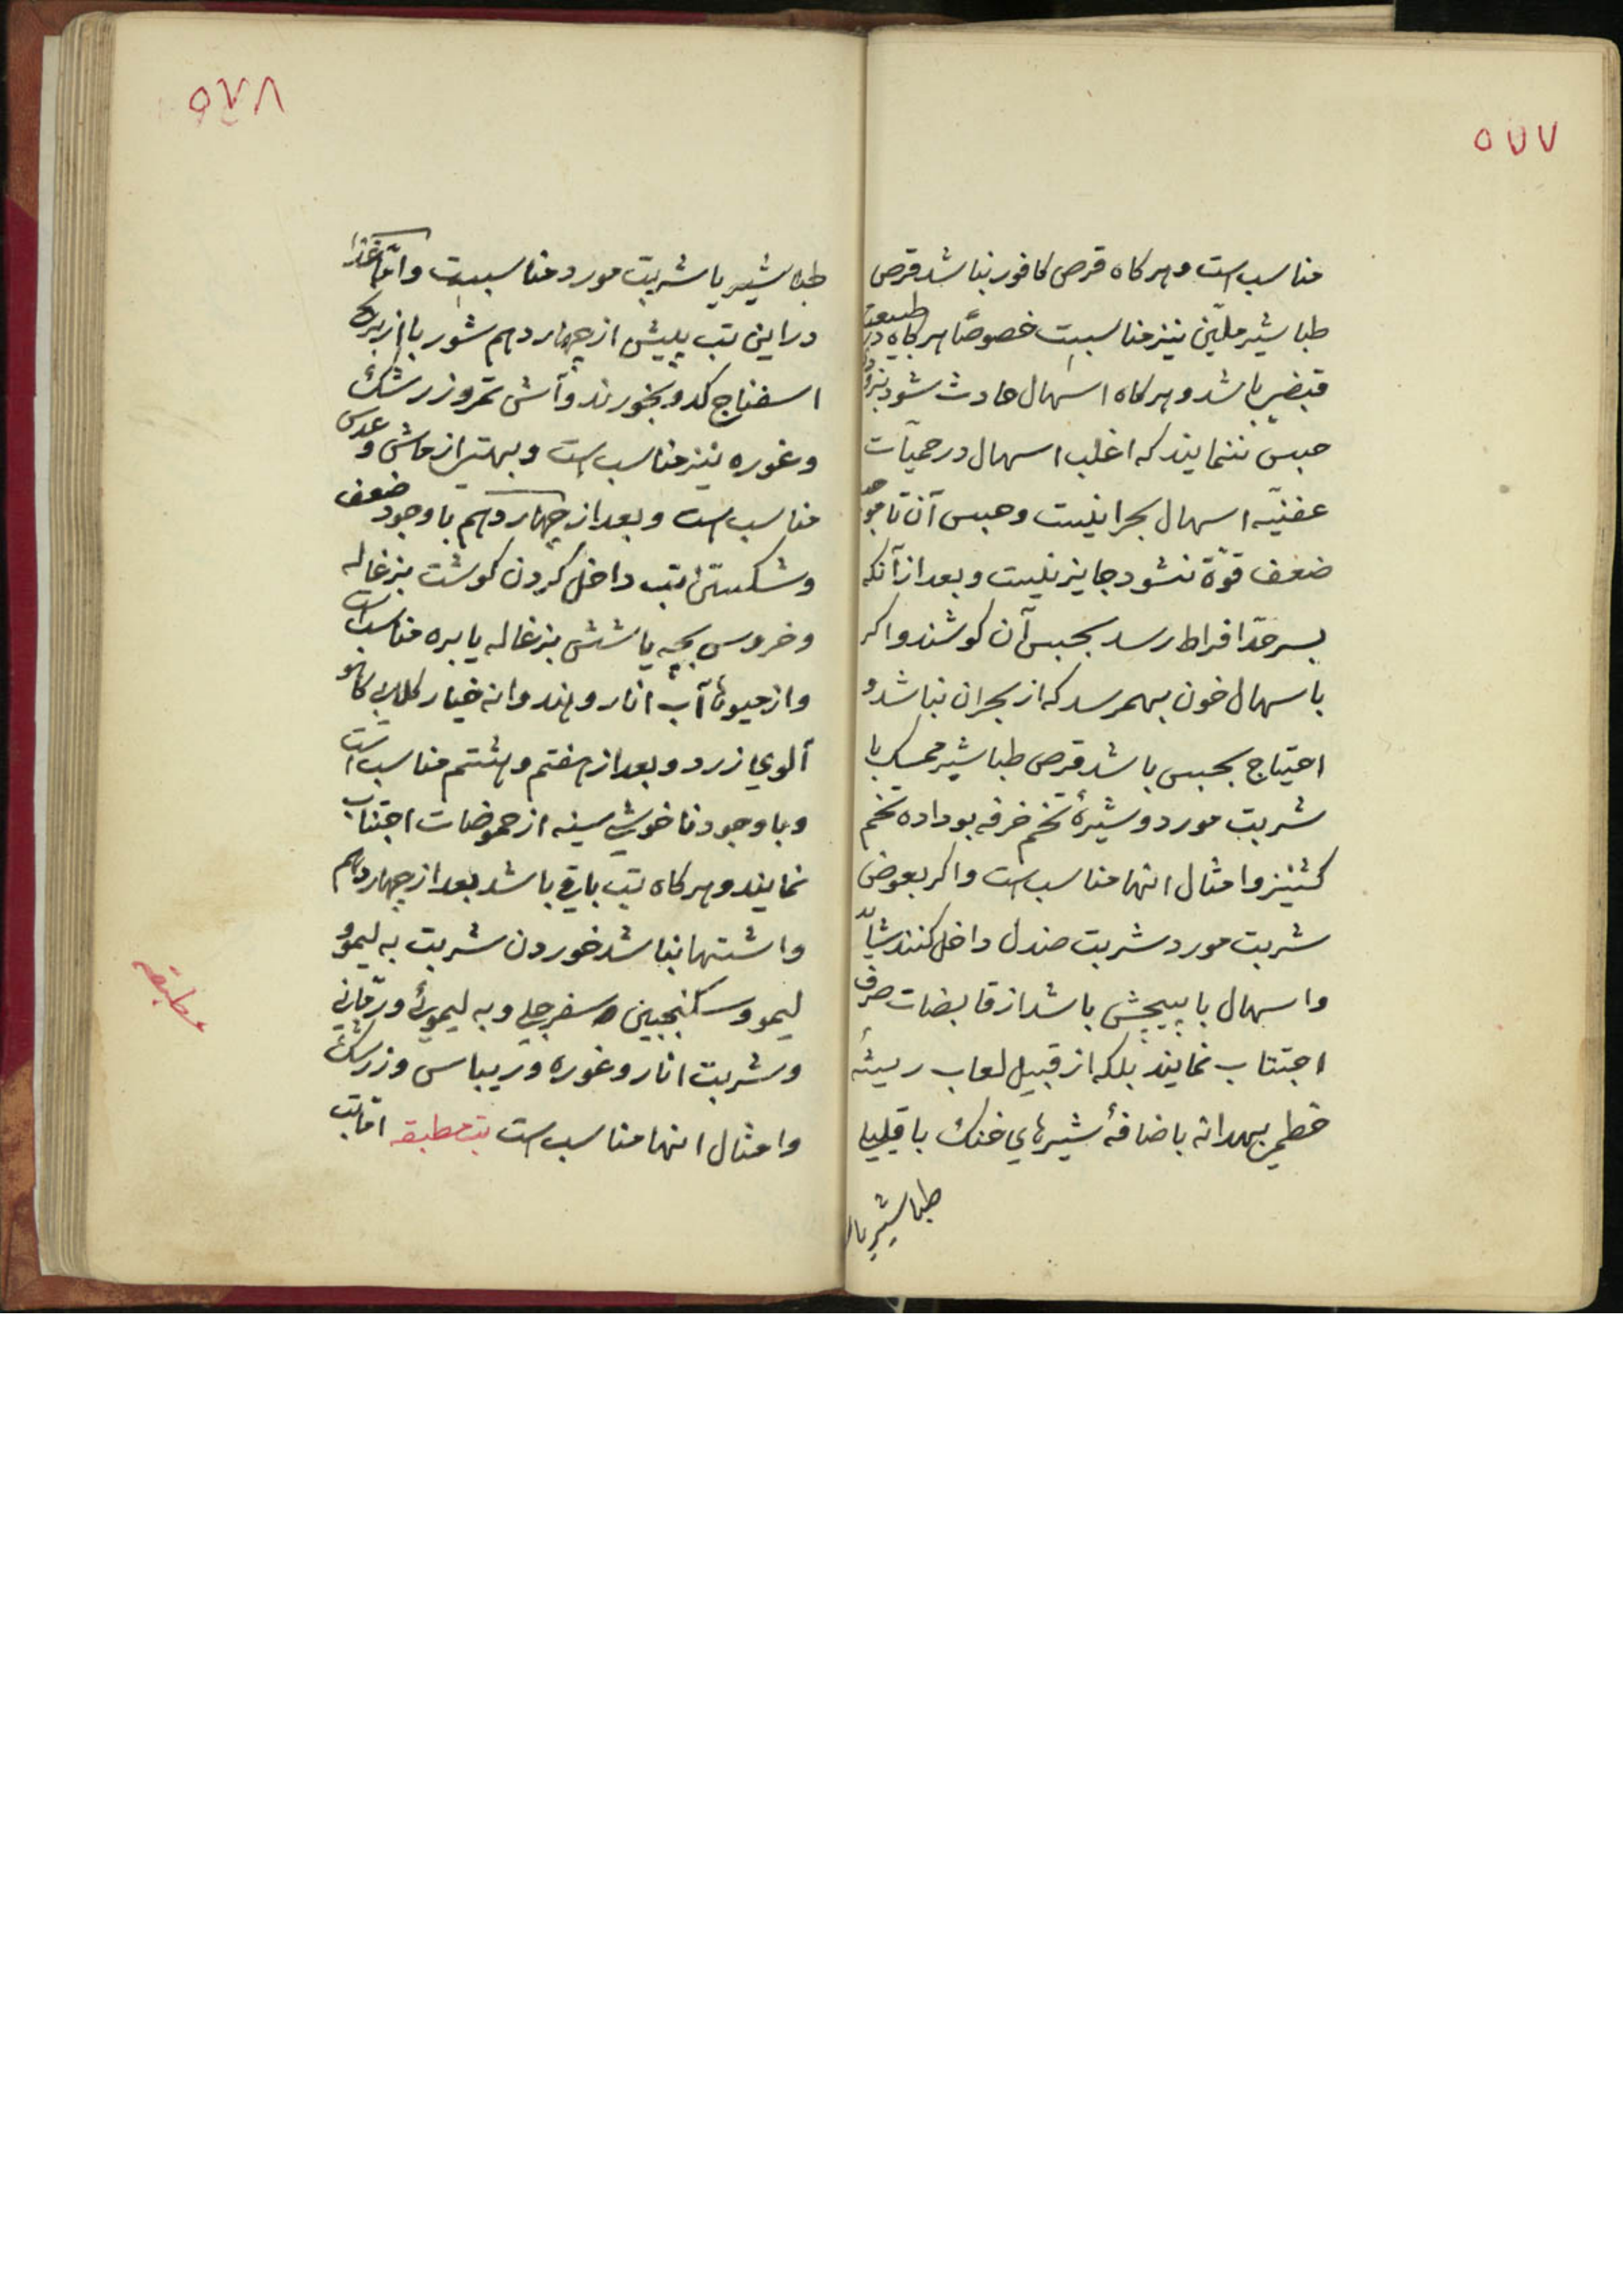 ۵۷۷
مناسب است و هر کاه قرص کافور نباشد قرص
طباشیر ملیّن نیز مناسبست خصوصًا هر کاه در طبیعت
قبض باشد و هر کاه اسهال حادث شود بزودی
حبس ننمایند که اغلب اسهال در حمیّات
عفنیّه اسهال بحرانیست و حبس آن تا موجب
ضعف قوّة نشود جایز نیست و بعد از آنکه
بسر حدّ افراط رسد بحبس آن کوشند و اکر
با سهال خون بهمرسد که از بحران نباشد و
احتیاج بحبس باشد قرص طباشیر ممسک با
شربت مورد و شیرهٔ تخم خرفه بو داده تخم
کشنیز و امثال انها مناسب است و اکر بعوض
شربت مورد شربت صندل داخل کنند شاید
و اسهال با پیچش باشد از قابضات صرف
اجتناب نمایند بلکه از قبیل لعاب ریشهٔ
خطمی بهدانه باضافهٔ شیرهای خنک با قلیلی
طباشیر با
۵۷۸
طباشیر یا شربت مورد مناسبست و امّا غذا
در این تب پیش از چهاردهم شوربا از برنج
اسفناج کدو بخورند و آش تمر و زرشک
و غوره نیز مناسب است و بهتر از ماش و عدس
مناسب است و بعد از چهاردهم با وجود ضعف
و شکستن تب داخل کردن کوشت بزغاله
و خروس بچه یا شش بزغاله یا بره مناسب است
و از میوها آب انار و هندوانه خیار کلابی کاهو
آلوی زرد و بعد از هفتم و هشتم مناسب است
و با وجود ناخوشی سینه از حموضات اجتناب
نمایند و هر کاه تب باقی باشد بعد از چهاردهم
و اشتها نباشد خوردن شربت به لیمو و
لیمو و سکنجبین سفرجلی و به لیموئی و رمّانی
و شربت انار و غوره و ریباس و زرشک
و امثال انها مناسب است تب مطبقه امّا تب
مطبقه